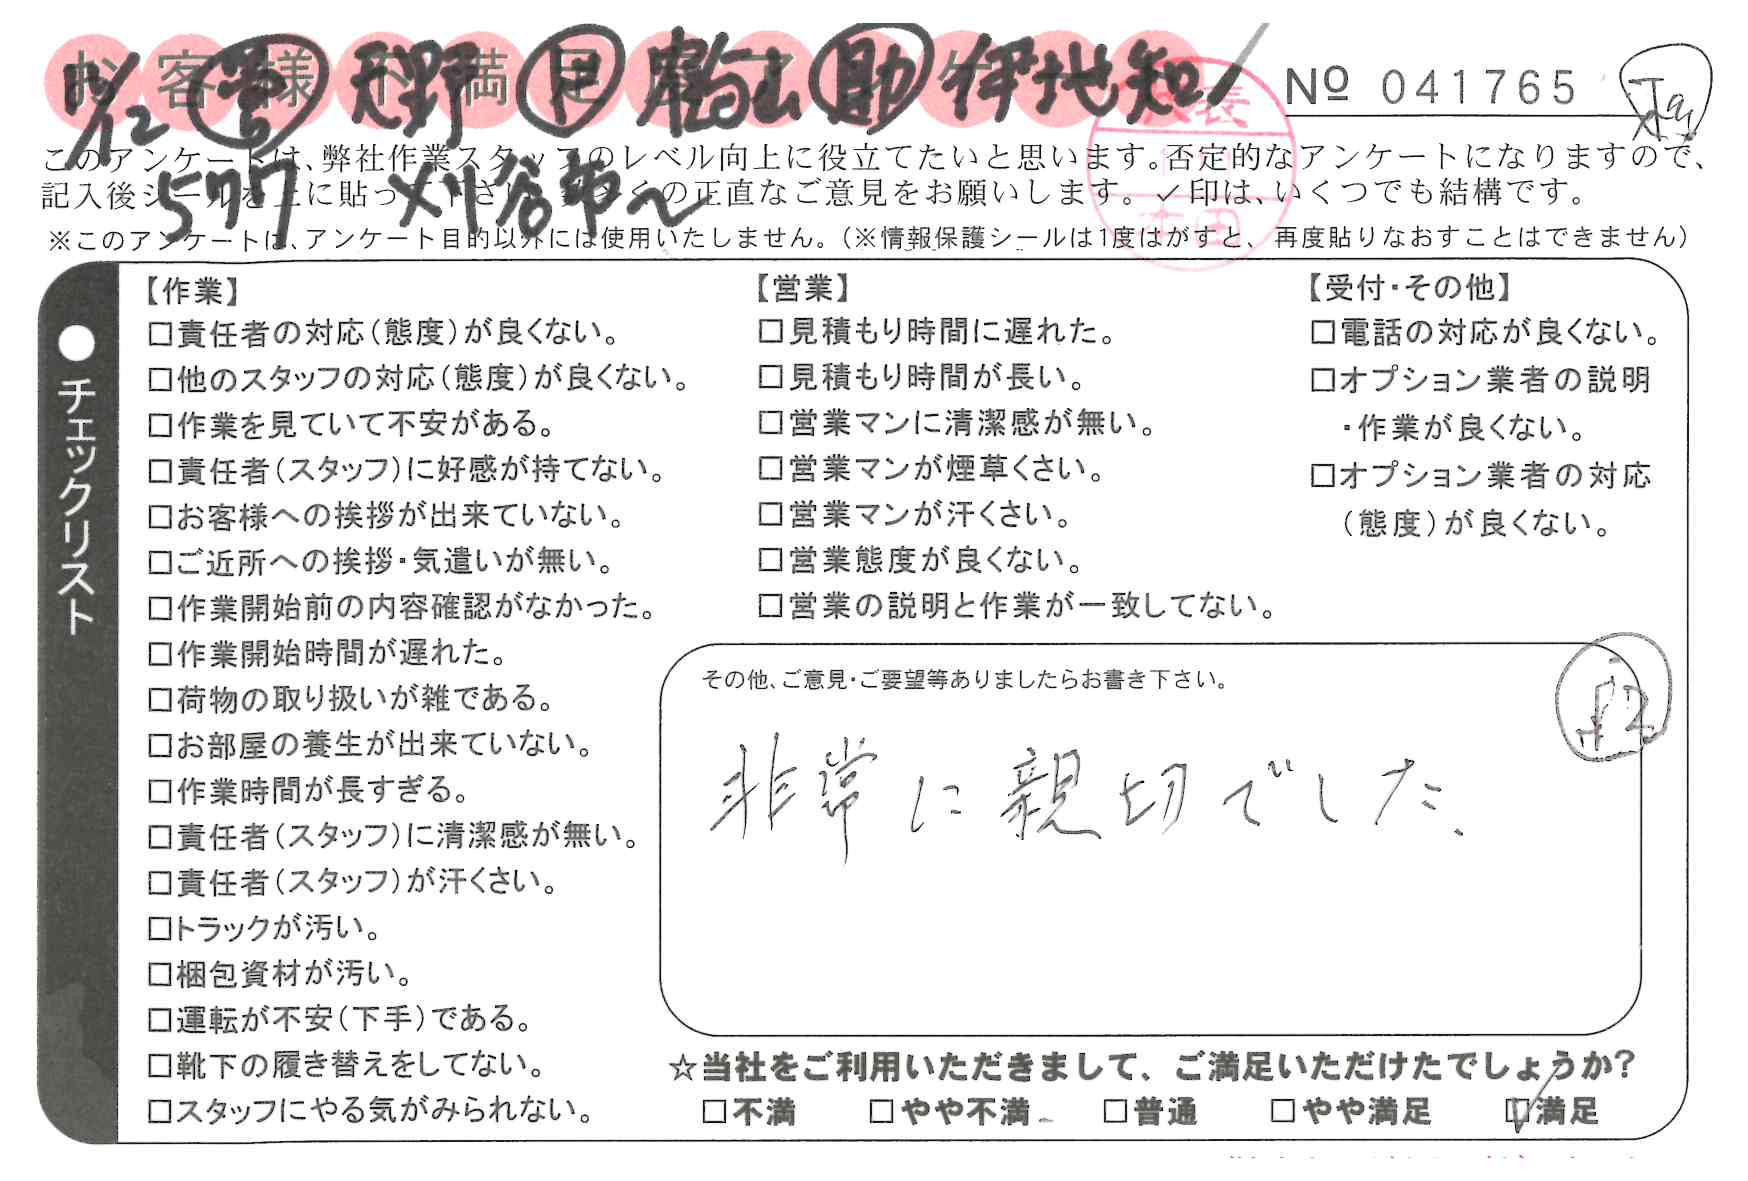 お客様不満足度アンケート
天野 助 伊地知
№ 041765
このアンケートは、弊社作業スタッフのレベル向上に役立てたいと思います。否定的なアンケートになりますので、
記入後シールを上に貼って下さい。 の正直なご意見をお願いします。✓印は、いくつでも結構です。
577 刈谷市〜
※このアンケートは、アンケート目的以外には使用いたしません。(※情報保護シールは1度はがすと、再度貼りなおすことはできません)
●チェックリスト
【作業】
□責任者の対応(態度)が良くない。
□他のスタッフの対応(態度)が良くない。
□作業を見ていて不安がある。
□責任者(スタッフ)に好感が持てない。
□お客様への挨拶が出来ていない。
□ご近所への挨拶・気遣いが無い。
□作業開始前の内容確認がなかった。
□作業開始時間が遅れた。
□荷物の取り扱いが雑である。
□お部屋の養生が出来ていない。
□作業時間が長すぎる。
□責任者(スタッフ)に清潔感が無い。
□責任者(スタッフ)が汗くさい。
□トラックが汚い。
□梱包資材が汚い。
□運転が不安(下手)である。
□靴下の履き替えをしてない。
□スタッフにやる気がみられない。
【営業】
□見積もり時間に遅れた。
□見積もり時間が長い。
□営業マンに清潔感が無い。
□営業マンが煙草くさい。
□営業マンが汗くさい。
□営業態度が良くない。
□営業の説明と作業が一致してない。
【受付・その他】
□電話の対応が良くない。
□オプション業者の説明
・作業が良くない。
□オプション業者の対応
(態度)が良くない。
その他、ご意見・ご要望等ありましたらお書き下さい。
非常に親切でした、
☆当社をご利用いただきまして、ご満足いただけたでしょうか?
□不満 □やや不満 □普通 □やや満足 ☑満足